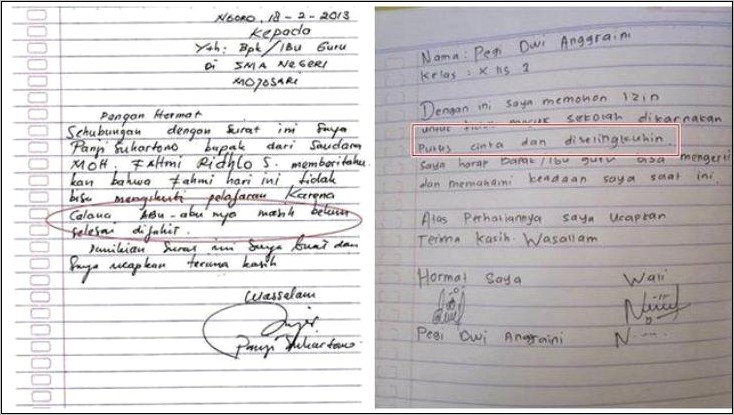 NGORO, 18-2-2013
Kepada
Yth: Bpk/Ibu Guru
Di SMA NEGERI
MOJOSARI
Dengan Hormat
Sehubungan dengan surat ini Saya
Panji Suhartono bapak dari Saudara
MOH. FAHMI Ridhlo S. memberitahu
kan bahwa Fahmi hari ini tidak
bisu mengikuti pelajaran Karena
Calana ABU-abu nya masih belum
selesai dijahit.
Demikian Surat ini Saya buat dan
Saya ucapkan terima kasih
Wassalam
Panji Suhartono
Nama: Pegi Dwi Anggraini
Kelas: X IIS 2
Dengan ini saya memohon Izin
untuk tidak masuk sekolah dikarnakan
Putus cinta dan diselingkuhin.
saya harap Bapak/Ibu guru bisa mengerti
dan memahami keadaan saya saat ini.
Atas Perhatiannya saya ucapkan
Terima kasih. Wasallam
Hormat Saya Wali
Pegi Dwi Anggraini